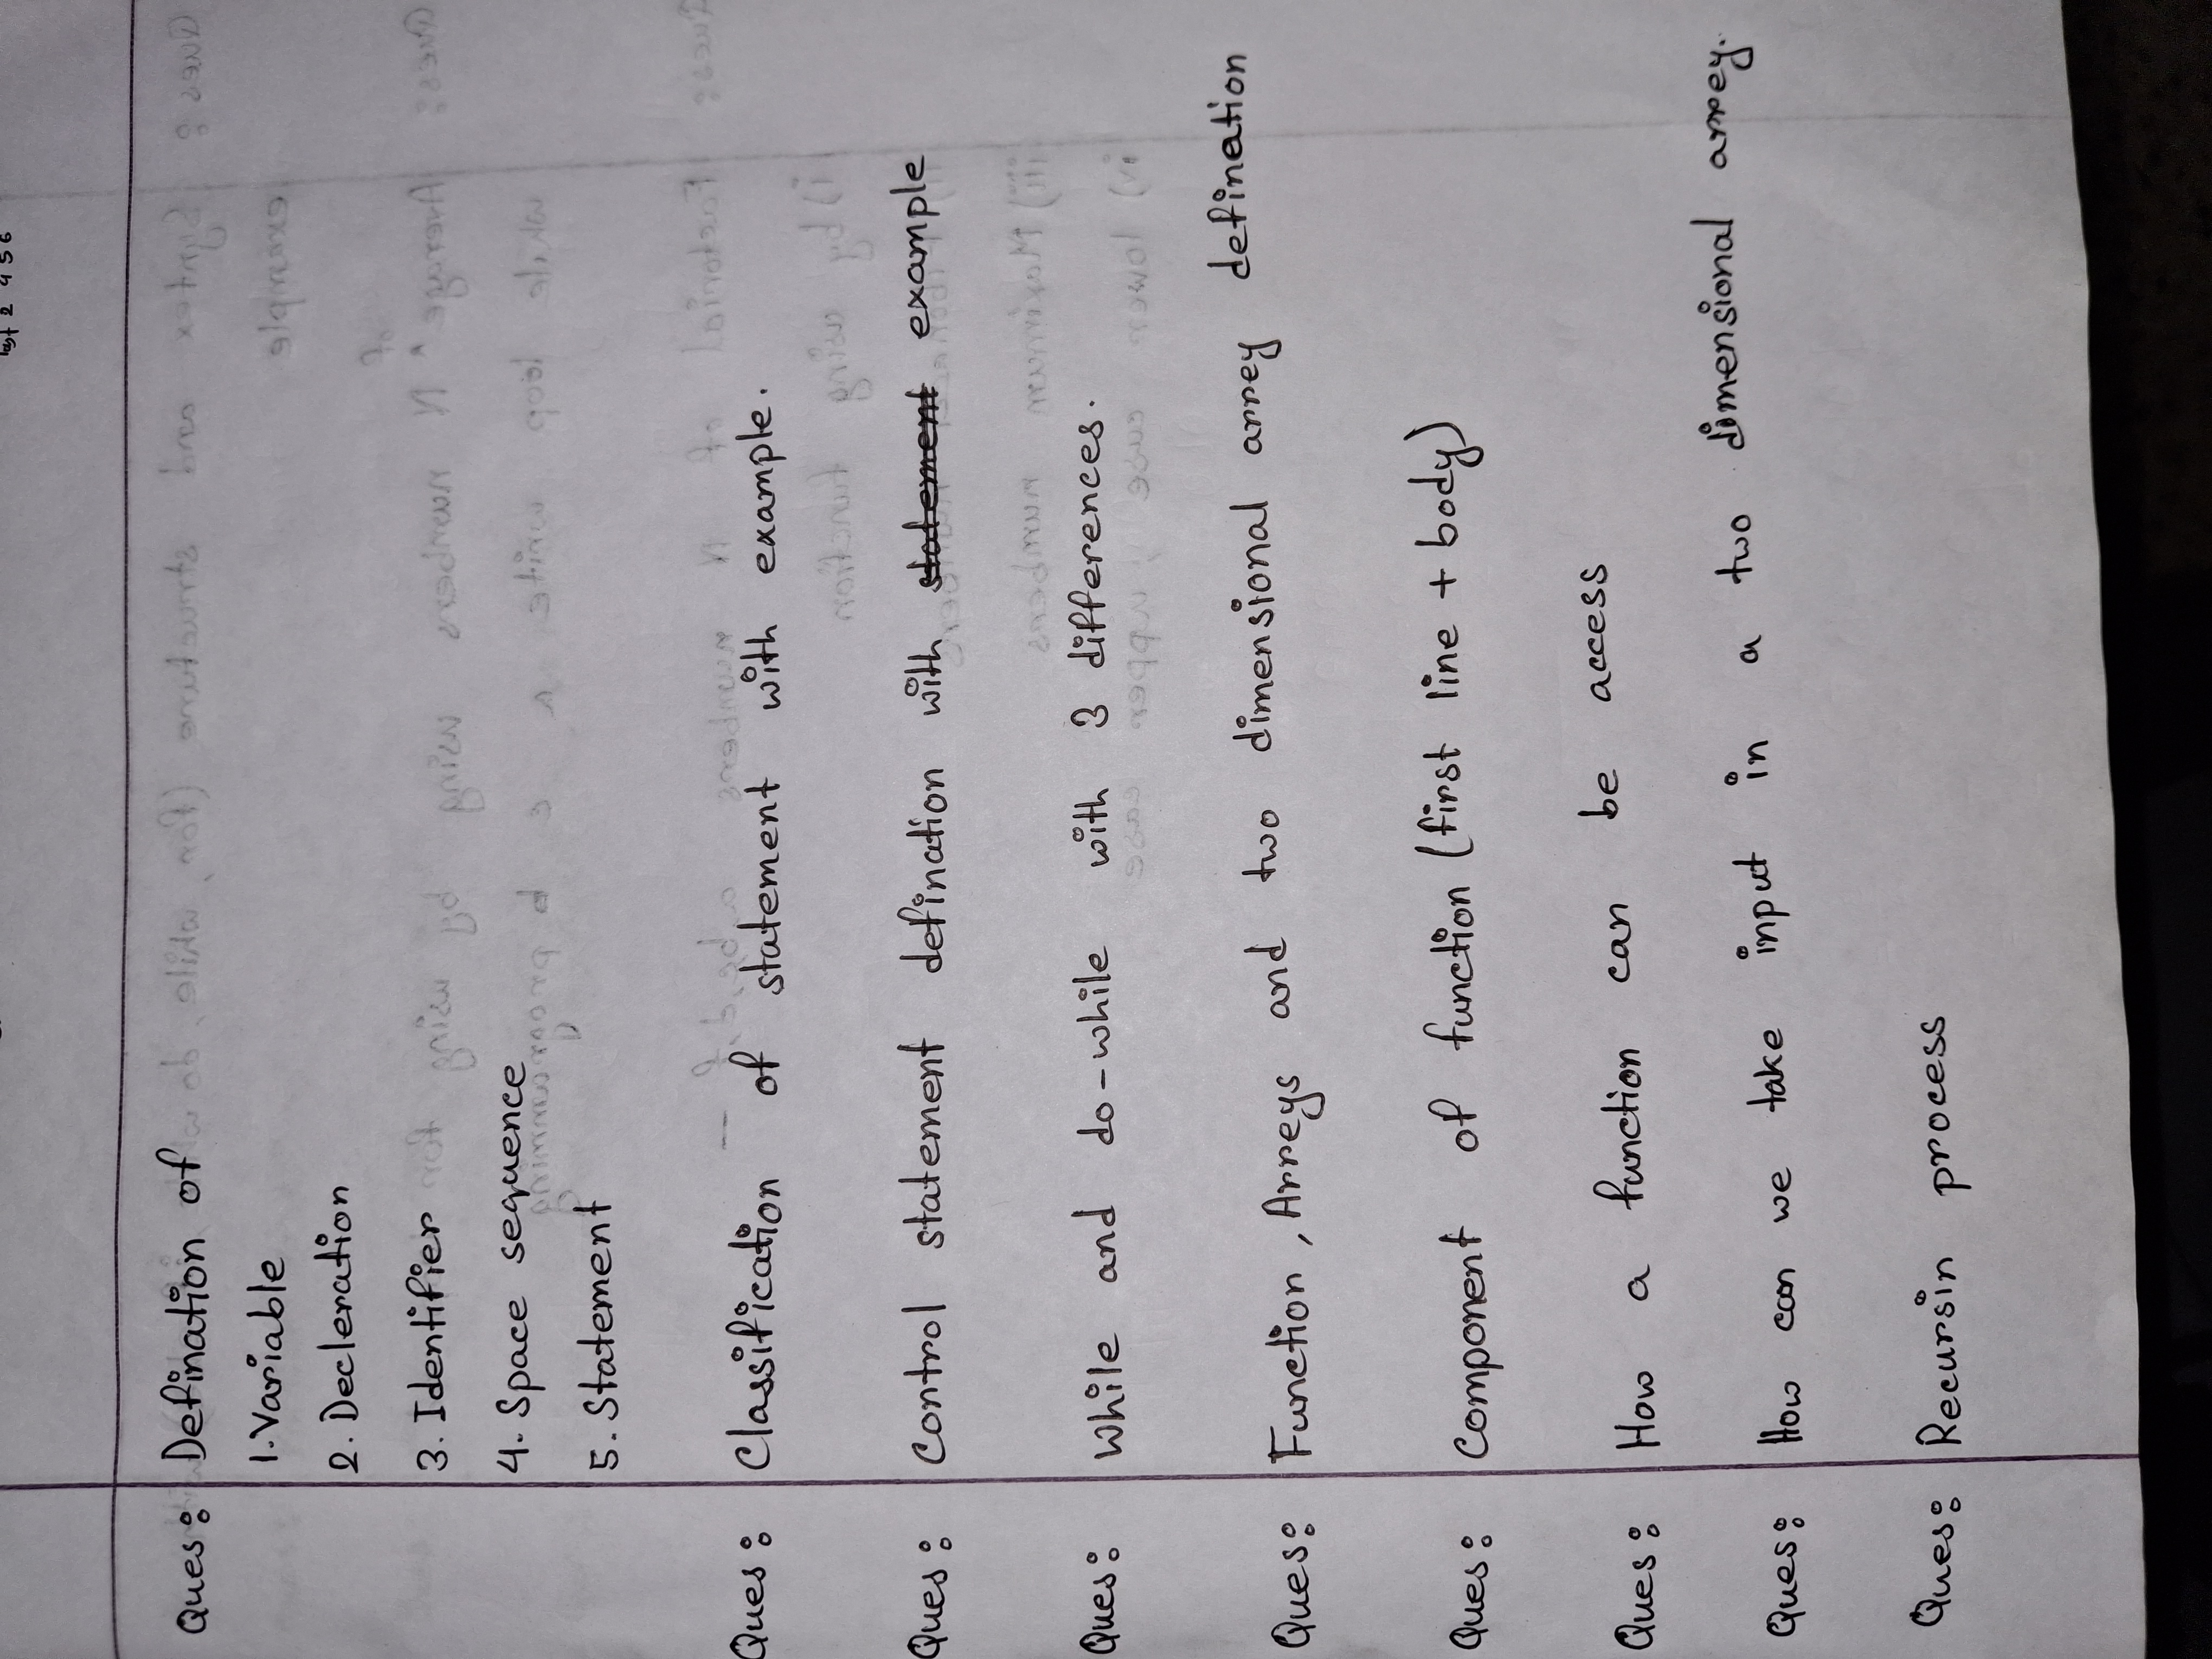 2 4 5 6
Ques: Defination of
1. Variable
2. Decleration
3. Identifier
4. Space sequence
5. Statement
Ques: Classification of statement with example.
Ques: Control statement defination with statement example
Ques: While and do-while with 3 differences.
Ques: Function, Arreys and two dimensional arrey defination
Ques: Component of function (first line + body)
Ques: How a function can be access
Ques: How can we take input in a two dimensional arrey.
Ques: Recursin process